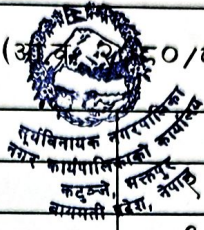 (आ.व. २०८०/
सूर्यविनायक नगरपालिका
नगर कार्यपालिकाको कार्यालय
कटुञ्जे, भक्तपुर
बागमती प्रदेश, नेपाल